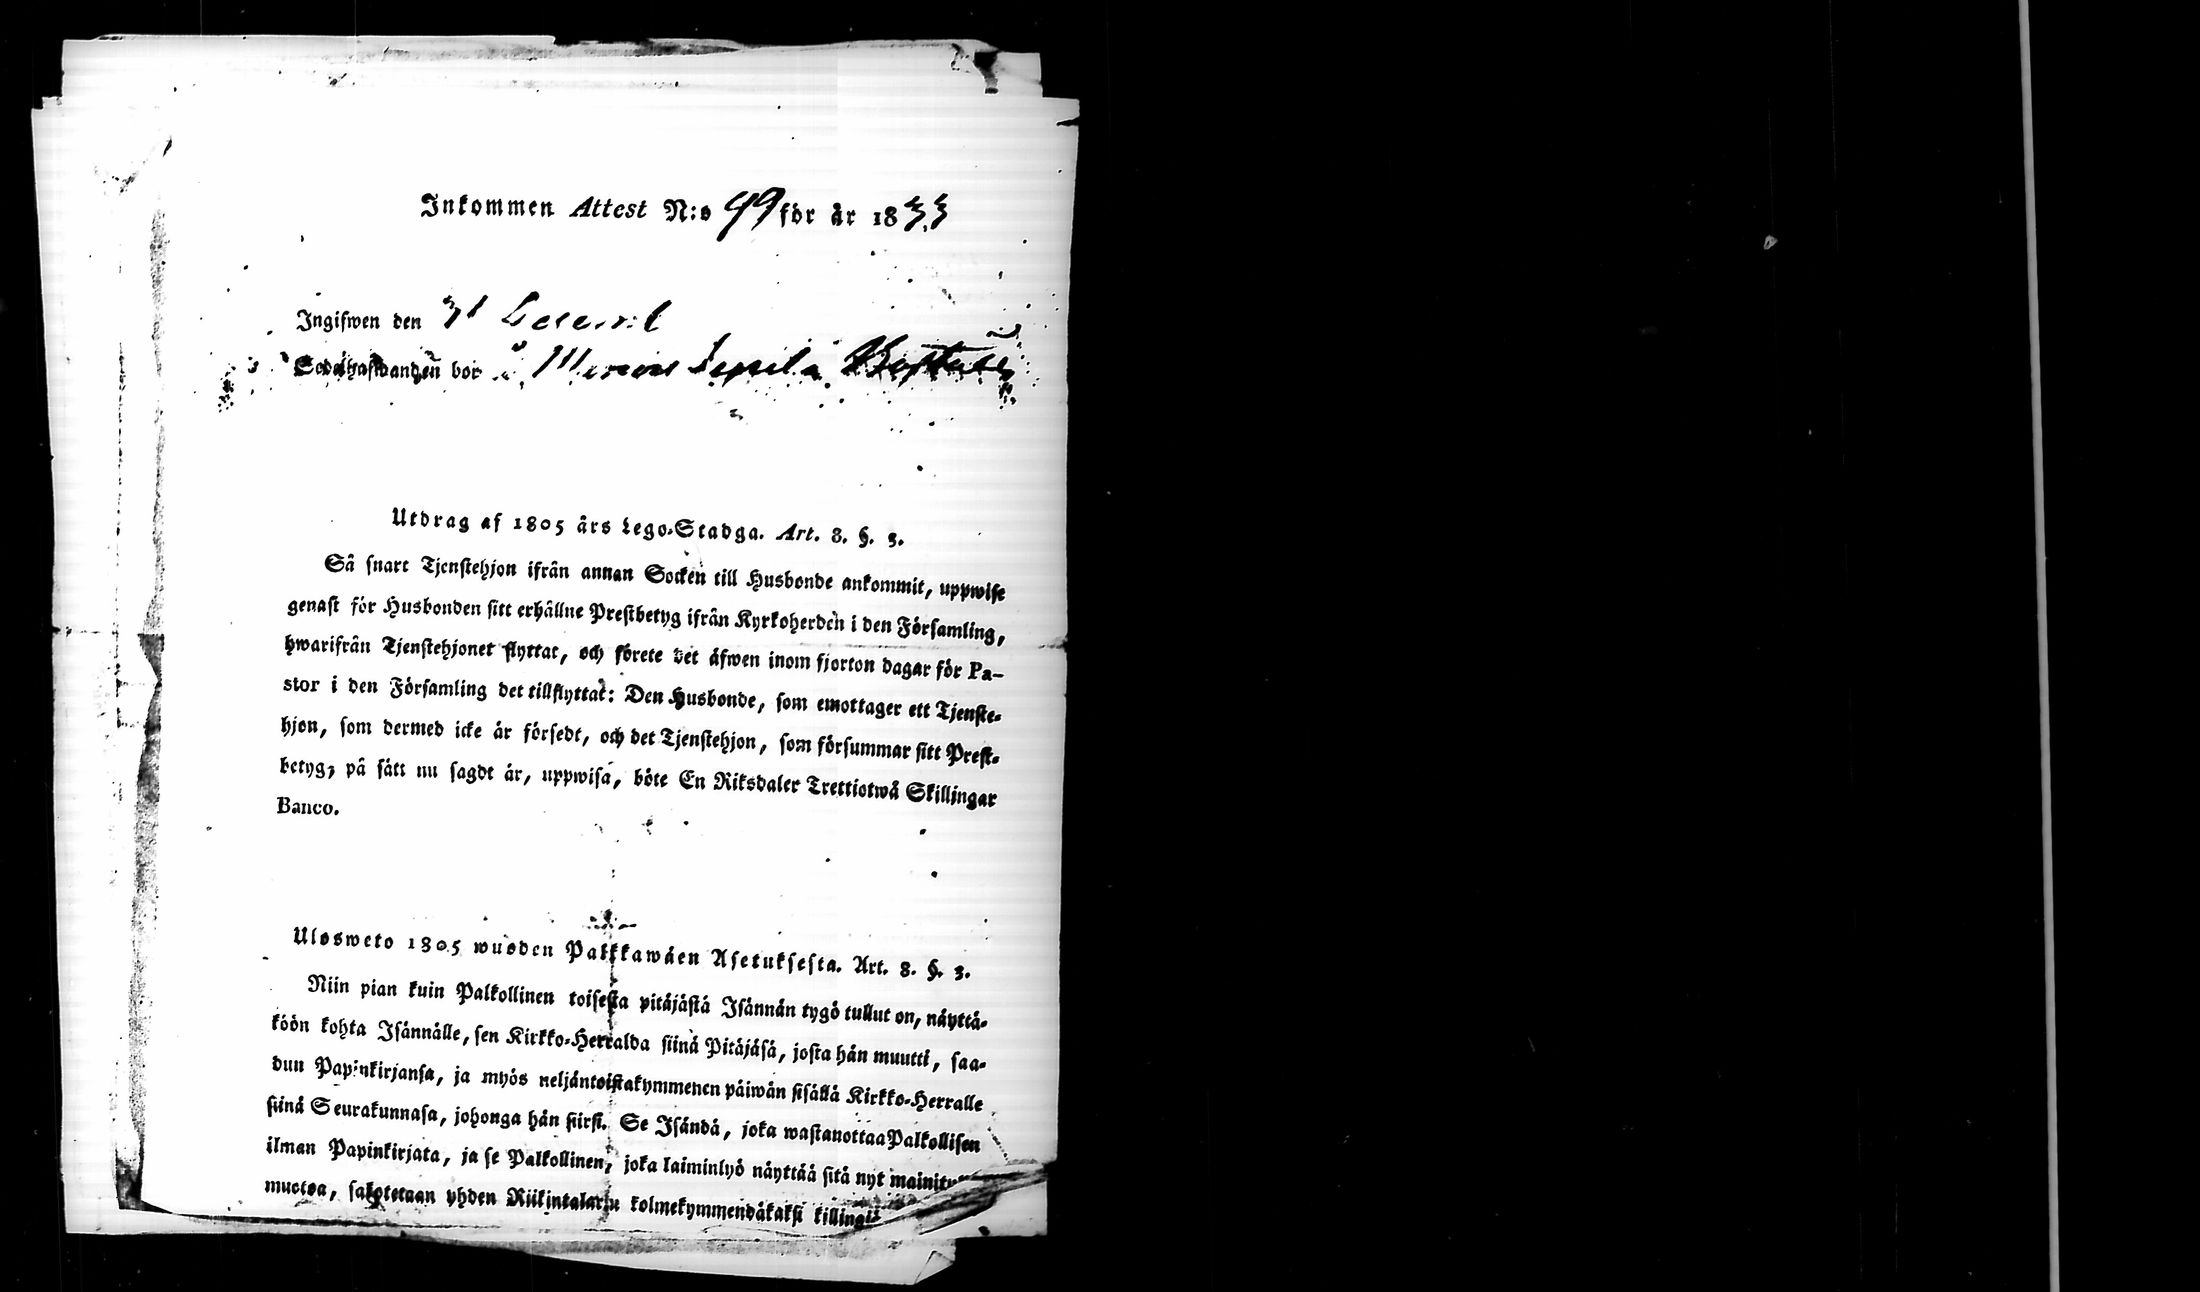 Inkommen Attest N:o 99 för år 1833
Ingifwen den 31 Decemb
Innehafwanden bor i
Utdrag af 1805 års Lego-Stadga. Art. 8. §. 3.
Så snart Tjenstehjon ifrån annan Socken till Husbonde ankommit, uppwise
genast för Husbonden sitt erhållne Prestbetyg ifrån Kyrkoherden i den Församling,
hwarifrån Tjenstehjonet flyttat, och förete det äfwen inom fjorton dagar för Pa-
stor i den Församling det tillflyttat: Den Husbonde, som emottager ett Tjenste-
hjon, som dermed icke är försedt, och det Tjenstehjon, som försummar sitt Prest-
betyg, på sätt nu sagdt är, uppwisa, böte En Riksdaler Trettiotwå Skillingar
Banco.
Ulosweto 1805 wuoden Palkkawäen Asetuksesta. Art. 8. §. 3.
Niin pian kuin Palkollinen toisesta pitäjästä Isännän tygö tullut on, näyttä-
köön kohta Isännälle, sen Kirkko-Herralda siinä Pitäjäsä, josta hän muutti, saa-
dun Papinkirjansa, ja myös neljäntoistakymmenen päiwän sisällä Kirkko-Herralle
siinä Seurakunnasa, johonga hän siirsi. Se Isändä, joka wastanottaa Palkollisen
ilman Papinkirjata, ja se Palkollinen, joka laiminlyö näyttää sitä nyt
muotoa, sakotetaan yhden Riikintalarin kolmekymmendäkaksi